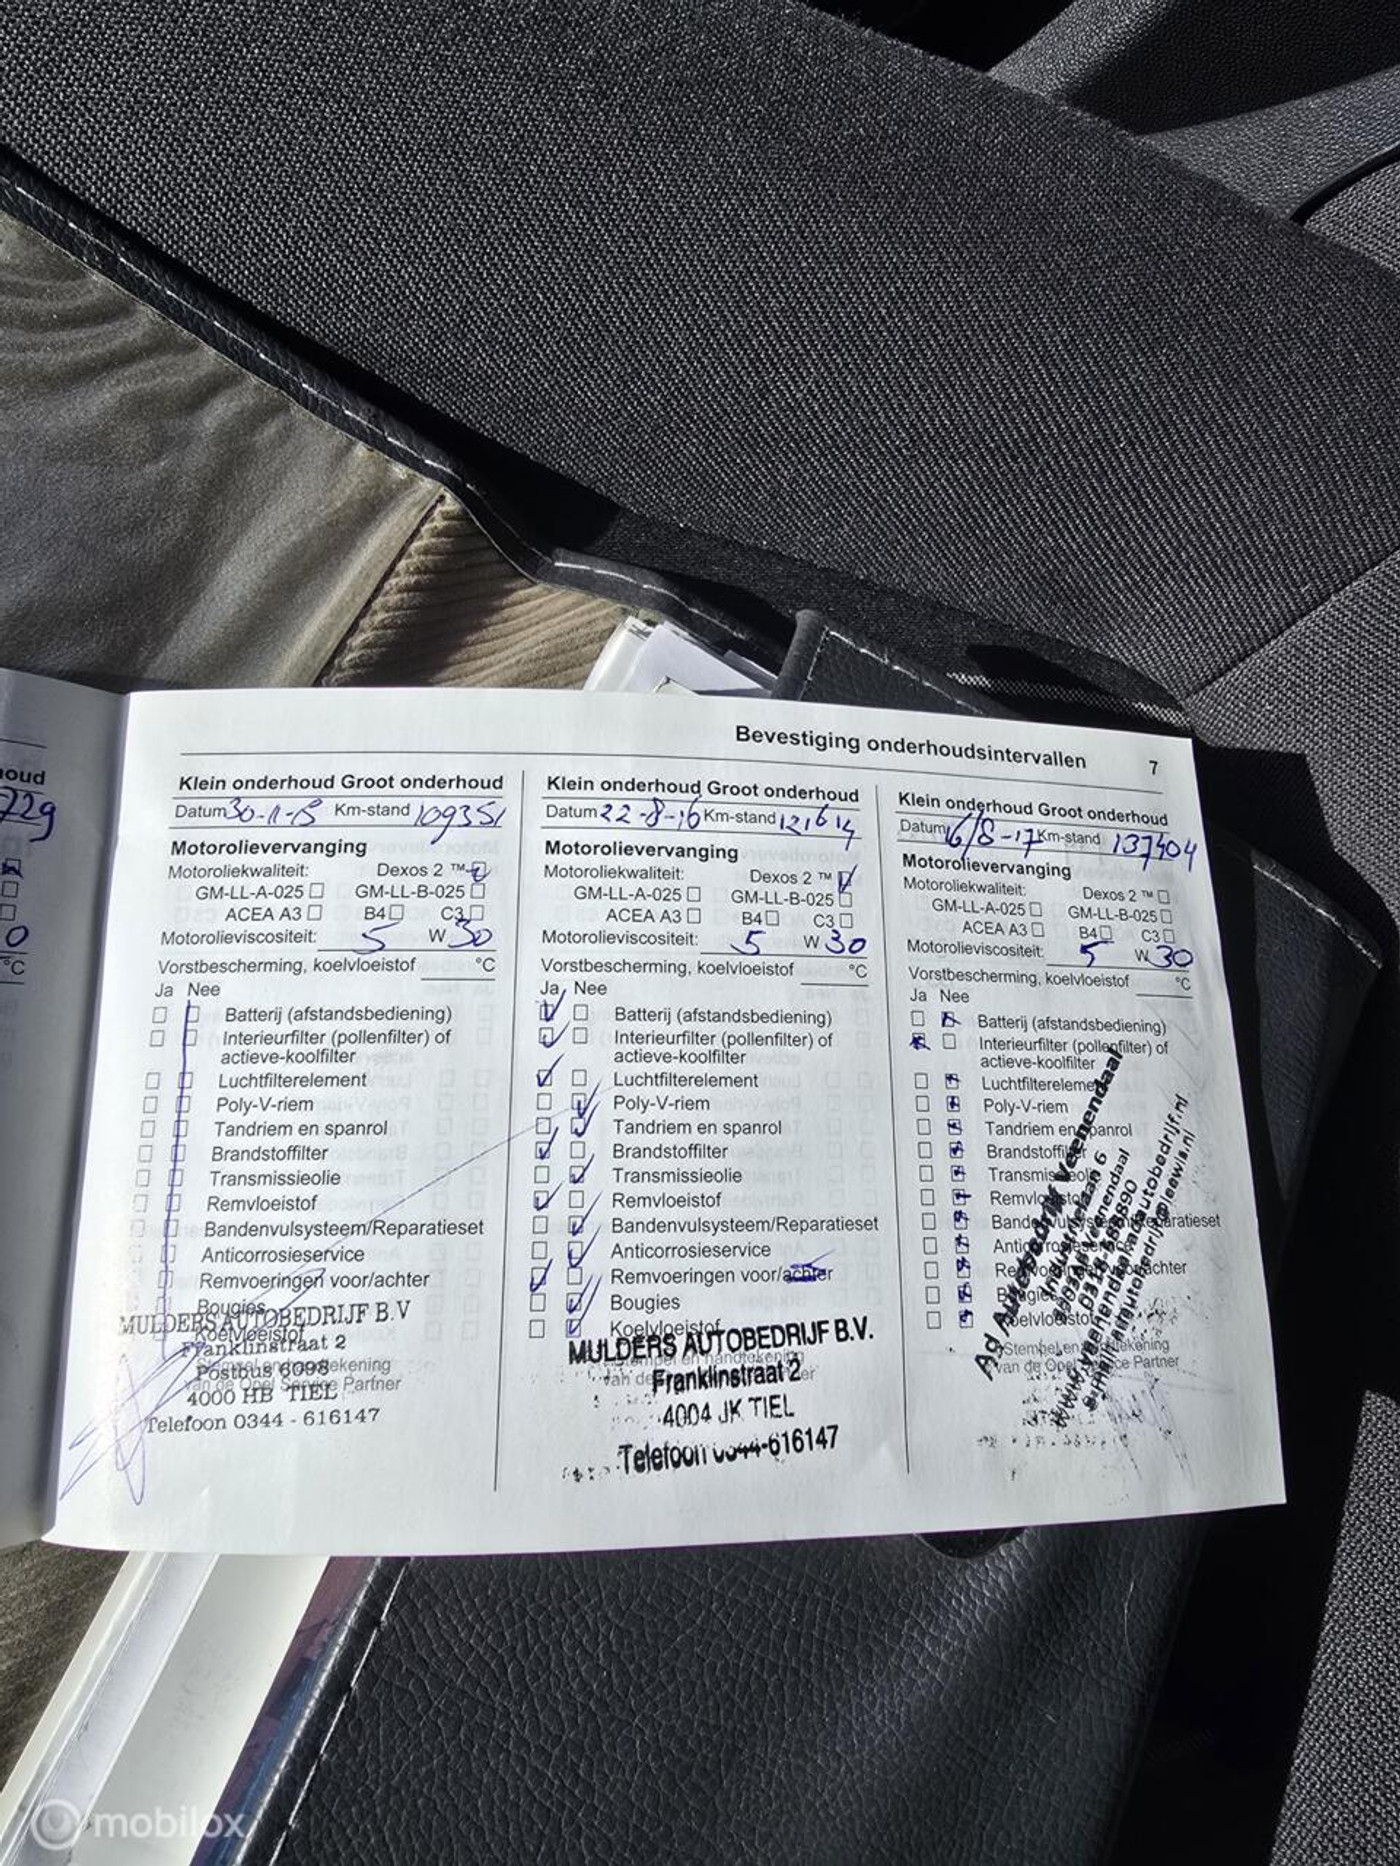 Bevestiging onderhoudsintervallen 7
oud
729
0
°C
Klein onderhoud Groot onderhoud
Datum 30-11-15 Km-stand 109351
Motorolievervanging
Motoroliekwaliteit: Dexos 2 ™
GM-LL-A-025 GM-LL-B-025
ACEA A3 B4 C3
Motorolieviscositeit: 5 W 30
Vorstbescherming, koelvloeistof °C
Ja Nee
Batterij (afstandsbediening)
Interieurfilter (pollenfilter) of
actieve-koolfilter
Luchtfilterelement
Poly-V-riem
Tandriem en spanrol
Brandstoffilter
Transmissieolie
Remvloeistof
Bandenvulsysteem/Reparatieset
Anticorrosieservice
Remvoeringen voor/achter
Bougies
Koelvloeistof
Stempel en handtekening
van de Opel Service Partner
MULDERS AUTOBEDRIJF B.V
Franklinstraat 2
Postbus 6098
4000 HB TIEL
Telefoon 0344 - 616147
Klein onderhoud Groot onderhoud
Datum 22-8-16 Km-stand 121614
Motorolievervanging
Motoroliekwaliteit: Dexos 2 ™
GM-LL-A-025 GM-LL-B-025
ACEA A3 B4 C3
Motorolieviscositeit: 5 W 30
Vorstbescherming, koelvloeistof °C
Ja Nee
Batterij (afstandsbediening)
Interieurfilter (pollenfilter) of
actieve-koolfilter
Luchtfilterelement
Poly-V-riem
Tandriem en spanrol
Brandstoffilter
Transmissieolie
Remvloeistof
Bandenvulsysteem/Reparatieset
Anticorrosieservice
Remvoeringen voor/achter
Bougies
Koelvloeistof
Stempel en handtekening
van de
MULDERS AUTOBEDRIJF B.V.
Franklinstraat 2
4004 JK TIEL
Telefoon 0344-616147
Klein onderhoud Groot onderhoud
Datum 16/8-17 Km-stand 137404
Motorolievervanging
Motoroliekwaliteit: Dexos 2 ™
GM-LL-A-025 GM-LL-B-025
ACEA A3 B4 C3
Motorolieviscositeit: 5 W 30
Vorstbescherming, koelvloeistof °C
Ja Nee
Batterij (afstandsbediening)
Interieurfilter (pollenfilter) of
actieve-koolfilter
Luchtfilterelement
Poly-V-riem
Tandriem en spanrol
Brandstoffilter
Transmissieolie
Remvloeistof
Bandenvulsysteem/Reparatieset
Anticorrosieservice
Remvoeringen voor/achter
Bougies
Koelvloeistof
Stempel en handtekening
van de Opel Service Partner
Ad Autobedrijf Veenendaal
6
Veenendaal
mobilox